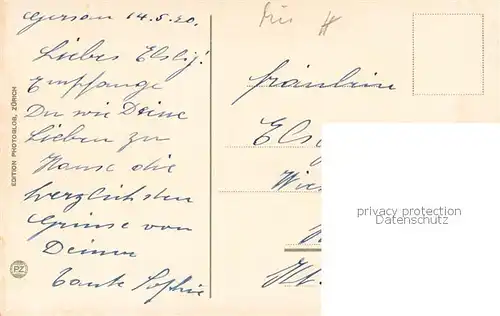 Gersau 14.5.20.
Liebes Elsly!
Empfange
Du wie Deine
Lieben zu
Hause die
herzlichsten
Grüsse von
Deiner
Tante Sophie
EDITION PHOTOGLOB, ZÜRICH
PZ
Fräulein
privacy protection
Datenschutz
Kt.